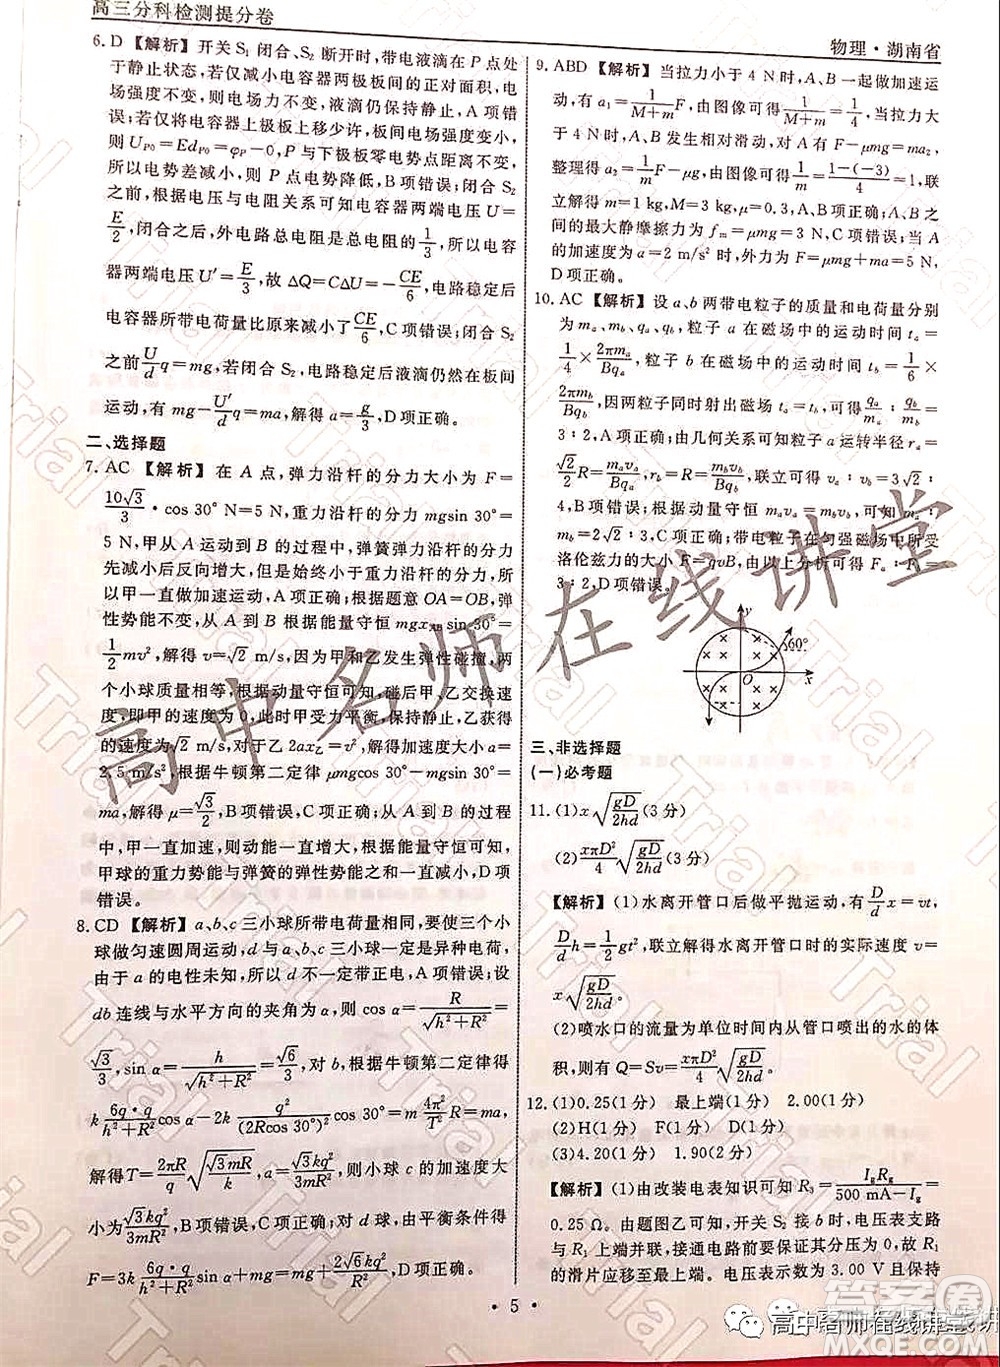 高三分科检测提分卷
物理·湖南省
6. D 【解析】开关 S₁ 闭合、S₂ 断开时,带电液滴在 P 点处
于静止状态,若仅减小电容器两极板间的正对面积,电
场强度不变,电场力不变,液滴仍保持静止,A 项错
误;若仅将电容器上极板上移少许,板间电场强度变小,
则 U_{P0}=Ed_{P0}=φ_P-0,P 与下极板零电势点距离不变,
所以电势差减小,P 点电势降低,B 项错误;闭合 S₂
前,根据电压与电阻关系可知电容器两端电压 U=
E/2,闭合之后,外电路总电阻是总电阻的 1/3,所以电容
器两端电压 U′=E/3,故 ΔQ=CΔU=-CE/6,电路稳定后
电容器所带电荷量比原来减小了 CE/6,C 项错误;闭合 S₂
之前 U/d q=mg,闭合 S₂,电路稳定后液滴仍然在板间
运动,有 mg-U′/d q=ma,解得 a=g/3,D 项正确。
二、选择题
7. AC 【解析】在 A 点,弹力沿杆的分力大小为 F=
10√3/3·cos 30° N=5 N,重力沿杆的分力 mgsin 30°=
5 N,甲从 A 运动到 B 的过程中,弹簧弹力沿杆的分力
先减小后反向增大,但是始终小于重力沿杆的分力,所
以甲一直做加速运动;根据题意 OA=OB,弹簧的弹
性势能不变,从 A 到 B 根据能量守恒 mgx_{AB}sin 30°=
1/2 mv²,解得 v=√2 m/s,因为甲和乙发生弹性碰撞,两
个小球质量相等,根据动量守恒可知,碰后甲、乙交换速
度,甲的速度为 0,此时甲受力平衡,保持静止,乙获得
的速度为√2 m/s,对于乙 2ax_乙=v²,解得加速度大小 a=
2.5 m/s²,根据牛顿第二定律 μmgcos 30°-mgsin 30°=
ma,解得 μ=√3/2,B 项错误、C 项正确;从 A 到 B 的过程
中,甲一直加速,则动能一直增大,根据能量守恒可知,
甲球的重力势能与弹簧的弹性势能之和一直减小,D项
错误。
8. CD 【解析】a、b、c 三小球所带电荷量相同,要使三个小
球做匀速圆周运动,d 与 a、b、c 三小球一定是异种电荷,
由于 a 的电性未知,所以 d 不一定带正电,A 项错误;设
db 连线与水平方向的夹角为 α,则 cos α=R/√(h²+R²)=
√3/3,sin α=h/√(h²+R²)=√6/3,对 b,根据牛顿第二定律得
k 6q·q/(h²+R²) cos α-2k q²/(2Rcos 30°)² cos 30°=m 4π²/T² R=ma,
解得 T=2πR/q √(√3mR/k),a=√3kq²/3mR²,则小球 c 的加速度大
小为 √3kq²/3mR²,B 项错误、C 项正确;对 d,由平衡条件得
F=3k 6q·q/(h²+R²) sin α+mg=2√6kq²/R²+mg,D 项正确。
9. ABD 【解析】当拉力小于 4 N时,A、B 一起做加速运
动,有 a₁=1/(M+m) F,由图像可得 1/(M+m)=1/4,当拉力大
于 4 N时,A、B 发生相对滑动,对 A 有 F-μmg=ma₂,
整理得 a₂=1/m F-μg,由图像可得 1/m=(1-(-3))/4,联
立解得 m=1 kg,M=3 kg,μ=0.3,A、B项正确;A、B 间
的最大静摩擦力为 μmg=3 N,C 项错误;当滑块 A
的加速度为 a=2 m/s² 时,外力为 F=μmg+ma=5 N,
D 项正确。
10. AC 【解析】设 a、b 两带电粒子的质量和电荷量分别
为 m_a、m_b、q_a、q_b,粒子 a 在磁场中的运动时间 t_a=
1/4×2πm_a/Bq_a,粒子 b 在磁场中的运动时间 t_b=1/6×
2πm_b/Bq_b,因两粒子同时射出磁场 t_a=t_b,可得 q_a/m_a:q_b/m_b=
3:2,A 项正确;由几何关系可得粒子 a 运转半径 r_a=
√2/2 R=m_av_a/Bq_a,r_b=R=m_bv_b/Bq_b,联立可得 v_a:v_b=3√2:
4,B 项错误;
洛伦兹力的大小 F=qvB,则 F_a:F_b=
3:2,D 项错误。
y
60°
O
x
三、非选择题
(一)必考题
11. (1)x√(gD/2hd)(3 分)
(2)xπD²/4 √(gD/2hd)(3 分)
【解析】(1)水离开管口后做平抛运动,有 D/d x=vt,
D/d h=1/2 gt²,联立解得水离开管口时的实际速度为
x√(gD/2hd)。
(2)喷水口的流量为单位时间内从管口喷出的水的体
积,则有 Q=Sv=xπD²/4 √(gD/2hd)。
12. (1)0.25(1 分) 最上端(1 分) 2.00(1 分)
(2)H(1 分) F(1 分) D(1 分)
(3)4.20(1 分) 1.90(2 分)
【解析】(1)由改装电表知识可知 R₃=I_gR_g/(500 mA-I_g)=
0.25 Ω。由题图乙可知,开关 S₂ 接 b 时,电压表支路
与 R₁ 上端并联,接通电路前要保证其分压为 0,故 R₁
的滑片应移至最上端。电压表示数为 3.00 V 且保持
·5·
高中名师在线讲堂
答案圈
高中名师在线讲堂